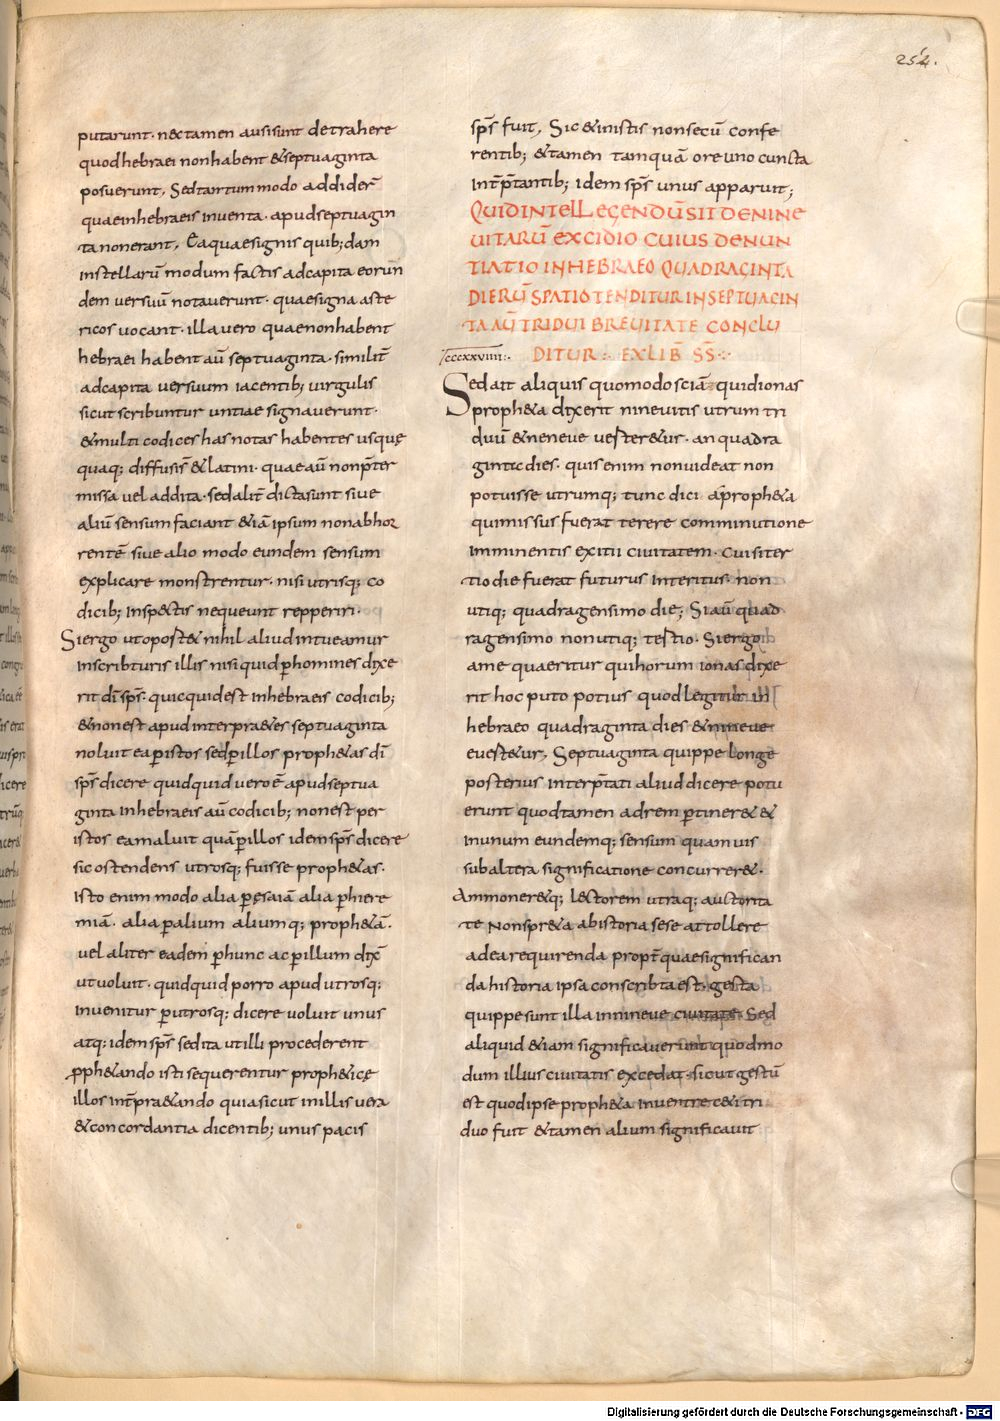 254.
putarunt· nectamen ausisunt detrahere
quodhebraei nonhabent &septuaginta
posuerunt, Sedtantummodo addider̄
quaeinhebraeis inventa· apudseptuagin
tanonerant, Eaquaesignis quib;dam
instellarū modum factis adcapita eorun
dem versuū notaverunt· quaesigna aste
ricos vocant· illavero quaenonhabent
hebraei habent aū septuaginta· similit̄
adcapita versuum iacentib; virgulis
sicut scribuntur untiae signaverunt·
&multi codices has notas habentes usquę
quaq; diffusis &latini· quae aū nonp̄ter
missa vel addita· sedalit̄ dictasunt sive
aliū sensum faciant &iā ipsum nonabhor
rentē sive alio modo eundem sensum
explicare monstrentur· nisi utrisq; co
dicib; inspectis nequeunt repperiri·
Siergo utoport& nihil aliud intueamur
inscribturis illis nisi quid phomines dixe
rit dī sp̄s· quicquidest inhebraeis codicib;
&nonest apud interpr&es septuaginta
noluit ea pistos sedpillos proph&as dī
sp̄s dicere quidquid veroē apudseptua
ginta inhebraeis aū codicib; nonest per
istos eamaluit quā pillos idemsp̄s dicere
sic ostendens utrosq; fuisse proph&as·
isto enim modo alia pęsaiā alia phiere
miā· alia palium aliumq; proph&ā·
vel aliter eadem phunc ac pillum dix̄
utvoluit· quidquid porro apud utrosq;
invenitur putrosq; dicere voluit unus
atq; idemsp̄s sedita utilli procederent
pph&ando isti sequerentur proph&icę
illos int̄pr&ando quiasicut inillis vera
&concordantia dicentib; unus pacis
sp̄s fuit, Sic &inistis nonsecū confe
rentib; &tamen tamquā ore uno cuncta
int̄p̄tantib; idem sp̄s unus apparuit;
QUIDINTELLEGENDŪSIT DENINE
UITARŪ EXCIDIO CUIUS DENUN
TIATIO INHEBRAEO QUADRAGINTA
DIERŪ SPATIO TENDITUR INSEPTUAGIN
TA AŪ TRIDUI BREUITATE CONCLU
DITUR: EXLIB̄ SS̄:
Sed ait aliquis quomodo sciā quidionas
proph&a dixerit ninevitis utrum tri
duū &neneve vert&ur· an quadra
ginta dies· quis enim nonvideat non
potuisse utrumq; tunc dici a proph&a
quimissus fuerat terere comminutione
imminentis exitii civitatem· Cuisiter
tio die fuerat futurus interitus· non
utiq; quadragensimo die; Siaū quad
ragensimo nonutiq; tertio· Siergo
ame quaeritur quihorum ionas dixe
rit hoc puto potius quodlegitur in
hebraeo quadraginta dies &nineve
evert&ur, Septuaginta quippe longe
posterius interp̄tati aliud dicere potu
erunt quodtamen adrem ptiner& &
inunum eundemq; sensum quamvis
subaltera significatione concurrer&·
Ammoner&q; lectorem utraq; auctorita
te nonspr&a abistoria sese attollere
adea requirenda propt̄ quaesignifican
da historia ipsa conscribta est· gesta
quippe sunt illa innineve civitate Sed
aliquid &iam significaverunt quodmo
dum illius civitatis excedat· sicut gestū
est quodipse proph&a inventre c&i tri
duo fuit &tamen alium significavit
Digitalisierung gefördert durch die Deutsche Forschungsgemeinschaft - DFG